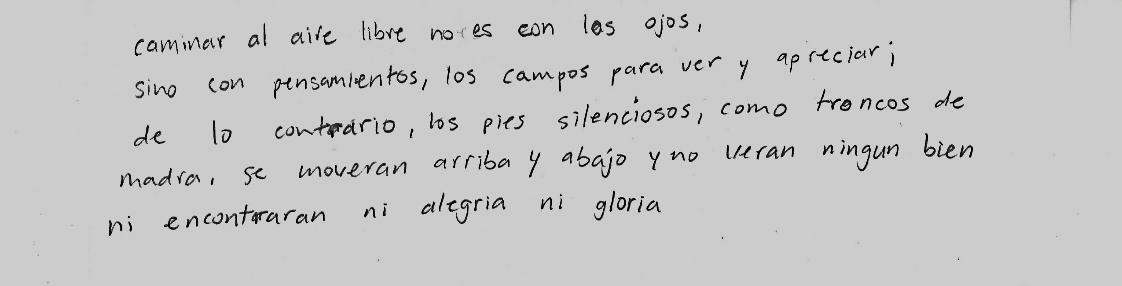 caminar al aire libre no es con los ojos,
sino con pensamientos, los campos para ver y apreciar;
de lo contrario, los pies silenciosos, como troncos de
madra, se moveran arriba y abajo y no veran ningun bien
ni encontraran ni alegria ni gloria